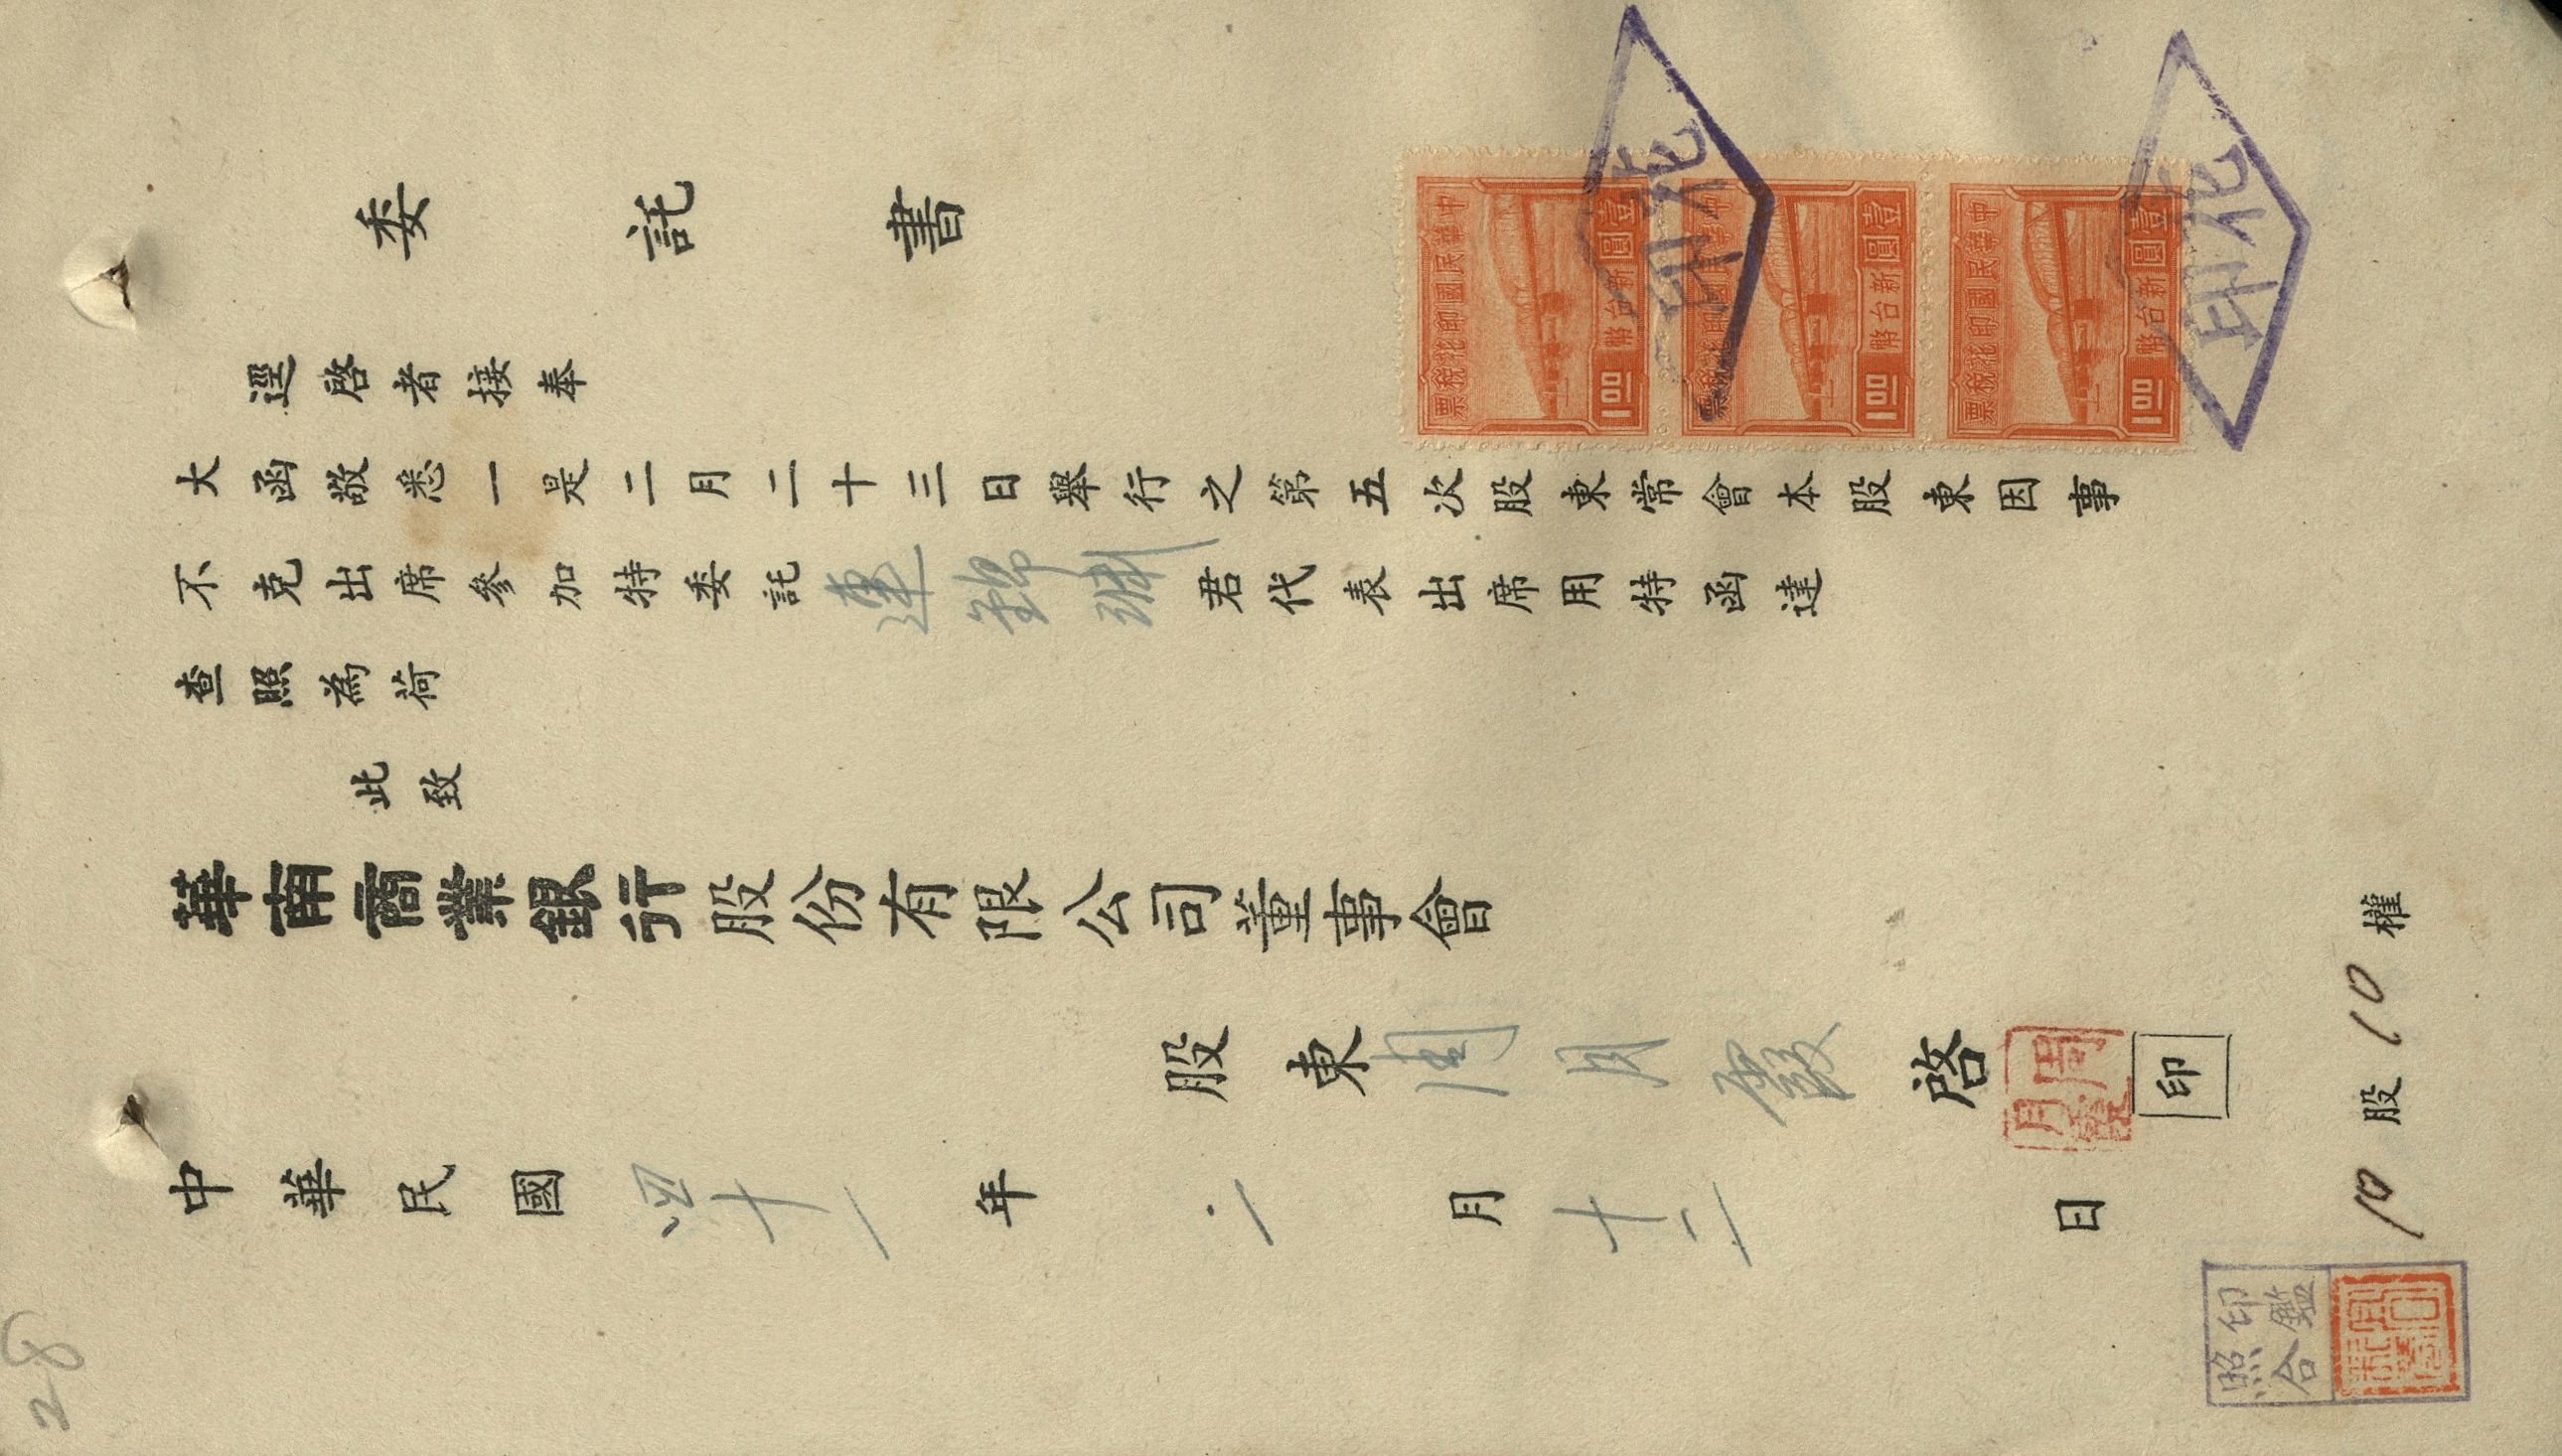 委託書
逕啓者接奉
大函敬悉一是二月二十三日舉行之第五次股東常會本股東因事
不克出席參加特委託連錦君代表出席用特函達
查照為荷
此致
華南商業銀行股份有限公司董事會
股東周月霞啓
周月霞
印
中華民國四十一年二月十二日
10股10權
中華民國印花稅票
壹圓
新台幣
1.00
中華民國印花稅票
壹圓
新台幣
1.00
中華民國印花稅票
壹圓
新台幣
1.00
印花
印花
印鑑
照合
28